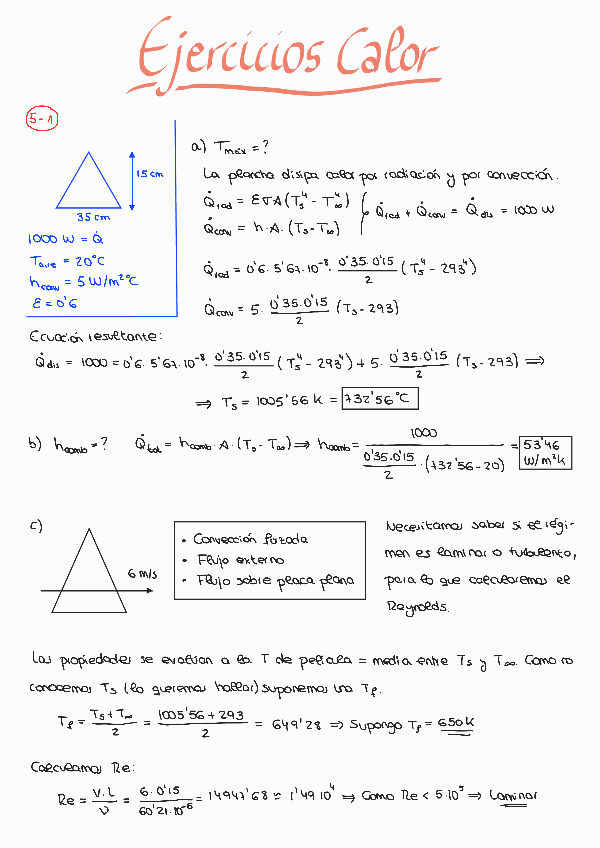 Ejercicios Calor
5-1
15 cm
35 cm
1000 W = Q̇
T aire = 20°C
h conv = 5 W/m²°C
ε = 0'6
a) Tmáx = ?
La plancha disipa calor por radiación y por convección.
Q̇rad = εσA (Ts⁴ - T∞⁴)
Q̇conv = h·A·(Ts-T∞)
Q̇rad + Q̇conv = Q̇dis = 1000 W
Q̇rad = 0'6 · 5'67·10⁻⁸ · 0'35·0'15/2 (Ts⁴ - 293⁴)
Q̇conv = 5 · 0'35·0'15/2 (Ts-293)
Ecuación resultante:
Q̇dis = 1000 = 0'6 · 5'67·10⁻⁸ · 0'35·0'15/2 (Ts⁴ - 293⁴) + 5 · 0'35·0'15/2 (Ts-293) ⇒
⇒ Ts = 1005'56 K = 732'56°C
b) hcomb = ? Q̇tot = hcomb · A · (Ts - T∞) ⇒ hcomb = 1000 / (0'35·0'15/2 · (732'56-20)) = 53'46 W/m²K
c)
6 m/s
• Convección forzada
• Flujo externo
• Flujo sobre placa plana
Necesitamos saber si el régi-
men es laminar o turbulento,
para lo que calcularemos el
Reynolds.
Las propiedades se evalúan a la T de película = media entre Ts y T∞. Como no
conocemos Ts (lo queremos hallar) suponemos una Tf.
Tf = Ts+T∞/2 = 1005'56 + 293/2 = 649'28 ⇒ Supongo Tf = 650K
Calculamos Re:
Re = V·L/ν = 6·0'15/60'21·10⁻⁶ = 14947'68 ≃ 1'49·10⁴ ⇒ Como Re < 5·10⁵ ⇒ Laminar